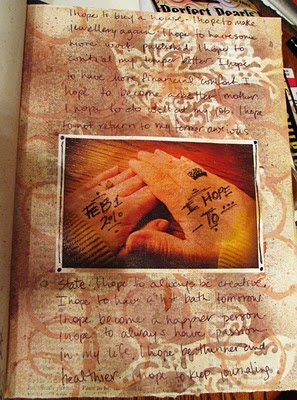 Dorfort Pearls
I hope to buy a house. I hope to make
jewellery again. I hope to have some
more work published. I hope to
control my temper better. I hope
to have more financial control. I
hope to become a better mother.
I hope to do well at my job. I hope
to not return to my former anxious
FEB 1
2010
I HOPE
TO
state. I hope to always be creative,
I hope to have a hot bath tomorrow
I hope become a happier person
I hope to always have passion
in my life. I hope be thinner and
healthier. I hope to keep journaling.